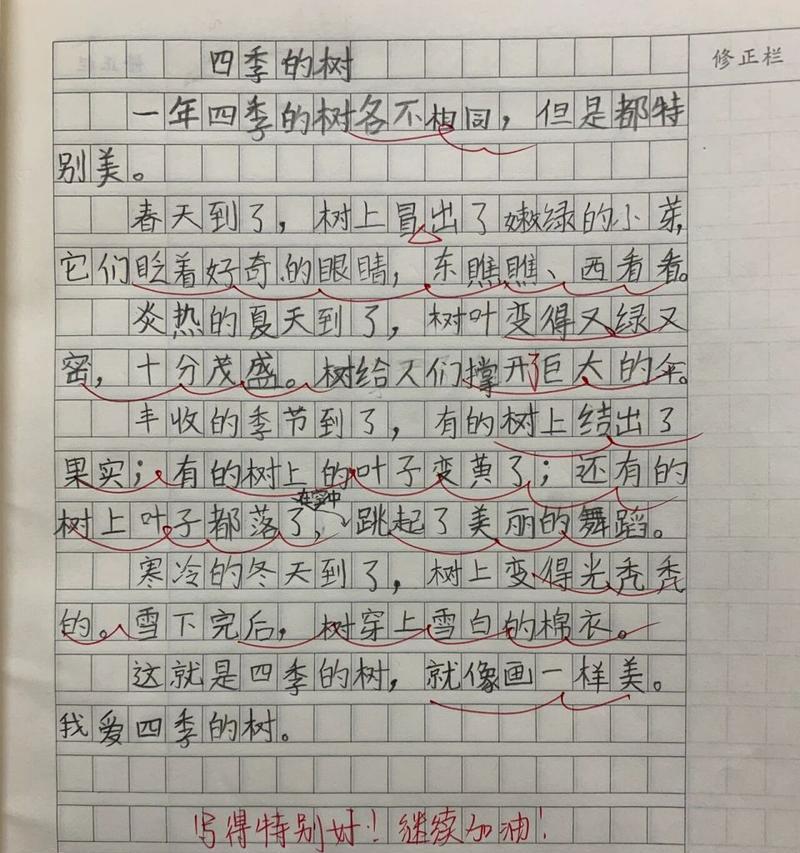 四季的树
修正栏
一年四季的树各不相同，但是都特
别美。
春天到了，树上冒出了嫩绿的小芽，
它们眨着好奇的眼睛，东瞧瞧、西看看。
炎热的夏天到了，树叶变得又绿又
密，十分茂盛。树给人们撑开了巨大的伞。
丰收的季节到了，有的树上结出了
果实；有的树上的叶子变黄了；还有的
在空中
树上叶子都落了，跳起了美丽的舞蹈。
寒冷的冬天到了，树上变得光秃秃
的。雪下完后，树穿上雪白的棉衣。
这就是四季的树，就像画一样美。
我爱四季的树。
写得特别好！继续加油！